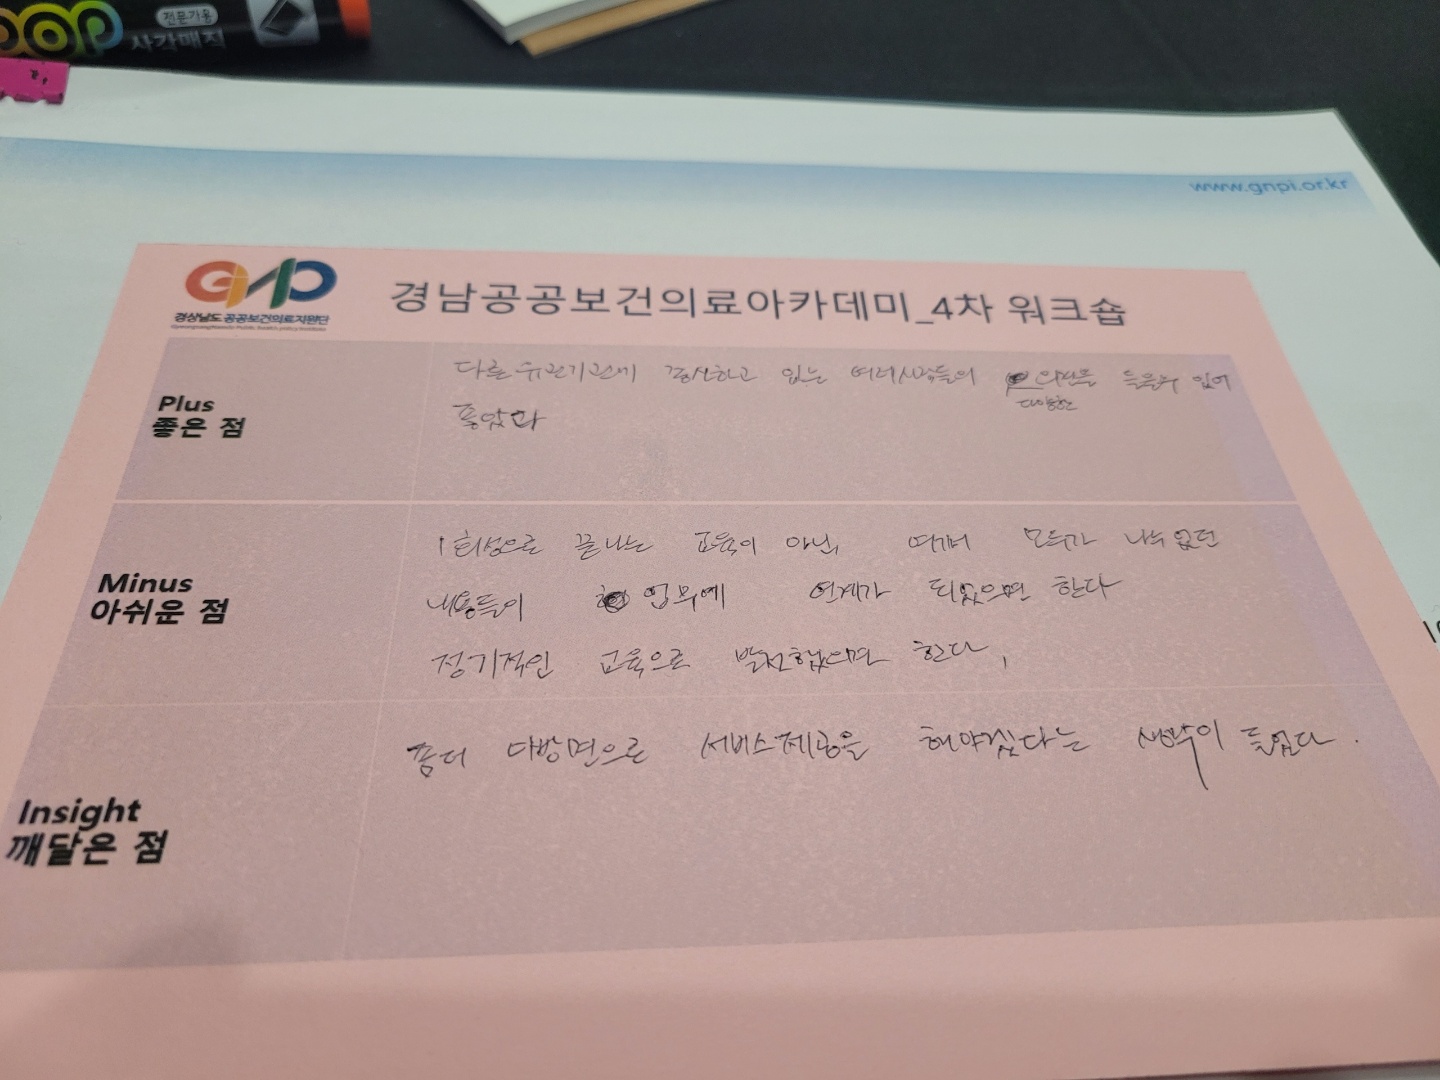 전문가용
사각매직
www.gnpi.or.kr
경상남도 공공보건의료지원단
경남공공보건의료아카데미_4차 워크숍
Plus
좋은 점
다른 유관기관에 하고 있는 여러사람들의 의견을 들을수 있어
다양한
좋았다
Minus
아쉬운 점
1회성으로 끝나는 교육이 아닌, 여기서 모두가 나누었던
내용들이 업무에 연계가 되었으면 한다
정기적인 교육으로 발전했으면 한다,
Insight
깨달은 점
좀더 다방면으로 서비스제공을 해야겠다는 생각이 들었다.